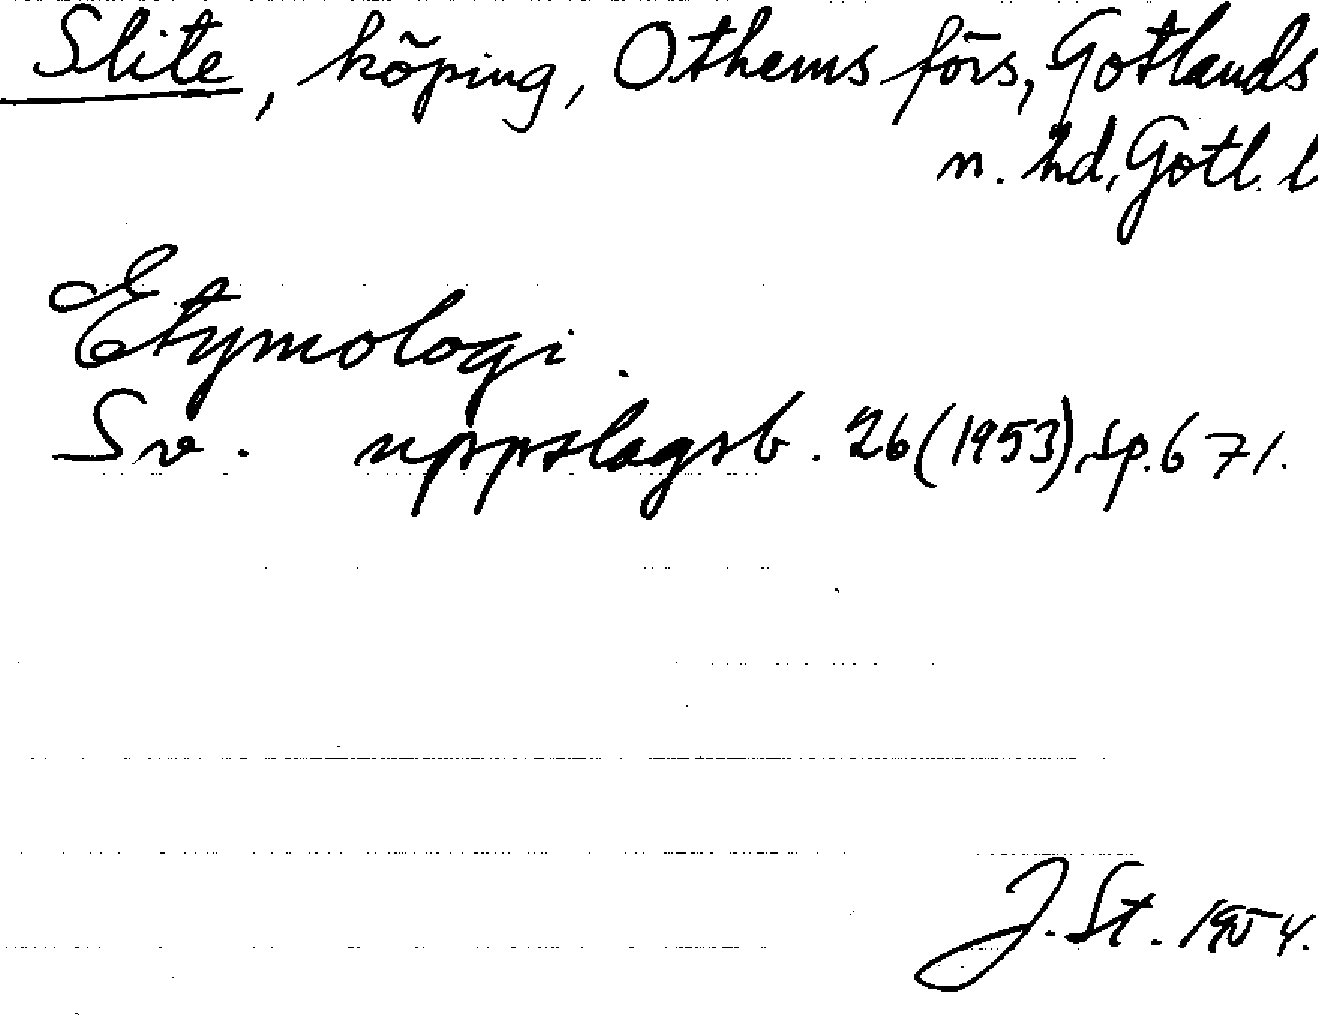 Slite, köping, Othems förs, Gotlands
n. hd, Gotl. l
Etymologi.
Sv. uppslagsb. 26 (1953), sp. 671.
J. St. 1954.